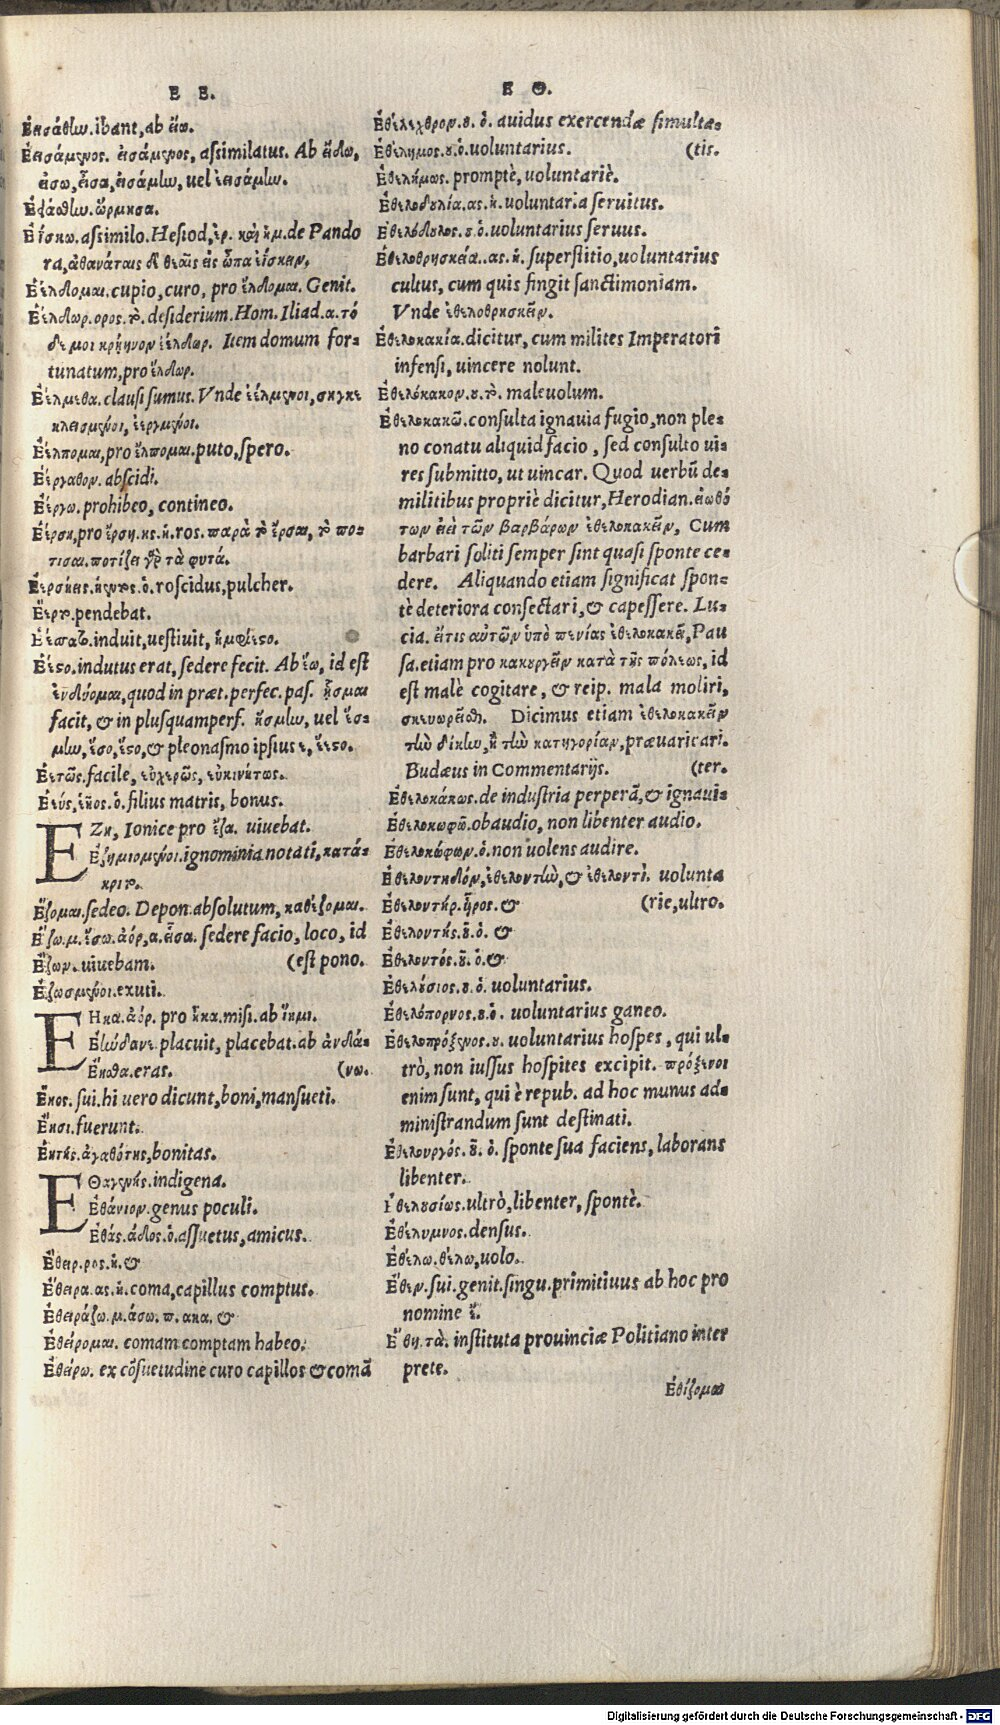 Ε Ε.
Ἐεισάσθην. ibant, ab εἴω.
Ἐεισάμενος. εἰσάμενος, assimilatus. Ab εἴδω,
εἴσω, εἶσα, εἰσάμην, uel ἐεισάμην.
ὥρμησα.
Ἐΐσκω. assimilo. Hesiod, ἐρ. καὶ ἡμ. de Pando
ra, ἀθανάταις δὲ θεαῖς εἰς ὦπα ἐΐσκειν,
Ἐέλδομαι. cupio, curo, pro ἔλδομαι. Genit.
Ἐέλδωρ. ορος. τὸ. desiderium. Hom. Iliad. α. τό
δε μοι κρήηνον ἐέλδωρ. Item domum for-
tunatum, pro ἔλδωρ.
Ἐέλμεθα. clausi sumus. Vnde ἐέλμενοι, συγκε
κλεισμένοι, ἐεργμένοι.
Ἐέλπομαι, pro ἔλπομαι. puto, spero.
Ἐέργαθον. abscidi.
Ἐέργω. prohibeo, contineo.
Ἐέρση, pro ἔρση. ης. ἡ. ros. παρὰ τὸ ἔρσαι, τὸ πο-
τίσαι. ποτίζει γὰρ τὰ φυτά.
Ἐερσήεις. ήεντος. ὁ. roscidus, pulcher.
Ἔερτο. pendebat.
Ἐέσσατο. induit, uestiuit, ἠμφίεστο.
Ἔεστο. indutus erat, sedere fecit. Ab ἕω, id est
ἐνδύομαι, quod in præt. perfec. pas. ἧσμαι
facit, & in plusquamperf. ἥσμην, uel ἕσ-
μην, ἕσο, ἕστο, & pleonasmo ipsius ε, ἔεστο.
Ἐετῶς. facile, εὐχερῶς, εὐκινήτως.
Ἐεύς, ἑῆος. ὁ. filius matris, bonus.
EΖη, Ionice pro ἔζα. uiuebat.
Ἐζημιομένοι. ignominia notati, κατά-
κριτοι.
Ἕζομαι. sedeo. Depon. absolutum, καθέζομαι.
Ἕζω. μ. ἕσω. ἀόρ, α. εἶσα. sedere facio, loco, id
Ἔζων. uiuebam. (est pono.
Ἐζωσμένοι. exuti.
EΗκα. ἀόρ. pro ἧκα. misi. ab ἵημι.
Ἐήνδανε. placuit, placebat. ab ἀνδά-
Ἔησθα. eras. (νω.
Ἐῆος. sui. hi uero dicunt, boni, mansueti.
Ἔησι. fuerunt.
Ἐητής. ἀγαθότης, bonitas.
EΘαγενής. indigena.
Ἐθάνιον. genus poculi.
Ἐθάς. άδος. ὁ. assuetus, amicus.
Ἔθειρ. ρος. ἡ. &
Ἔθειρα. ας. ἡ. coma, capillus comptus.
Ἐθειράζω. μ. άσω. π. ακα. &
Ἐθείρομαι. comam comptam habeo.
Ἐθείρω. ex cõsuetudine curo capillos & comã
Ε Θ.
Ἐθέλεχθρον. ου. ὁ. auidus exercendæ simulta-
Ἐθέλημος. ου. ὁ. uoluntarius. (tis.
Ἐθελήμως. promptè, uoluntariè.
Ἐθελοδουλία. ας. ἡ. uoluntaria seruitus.
Ἐθελόδουλος. ου. ὁ. uoluntarius seruus.
Ἐθελοθρησκεία. ας. ἡ. superstitio, uoluntarius
cultus, cum quis fingit sanctimoniam.
Vnde ἐθελοθρησκεῖν.
Ἐθελοκακία. dicitur, cum milites Imperatori
infensi, uincere nolunt.
Ἐθελόκακον. ου. τὸ. maleuolum.
Ἐθελοκακῶ. consulta ignauia fugio, non ple-
no conatu aliquid facio, sed consulto ui-
res submitto, ut uincar. Quod uerbũ de-
militibus propriè dicitur, Herodian. εἰωθό
των ἀεὶ τῶν βαρβάρων ἐθελοκακεῖν, Cum
barbari soliti semper sint quasi sponte ce-
dere. Aliquando etiam significat spon-
tè deteriora consectari, & capessere. Lu-
cia. εἴτις αὐτῶν ὑπὸ πενίας ἐθελοκακεῖ, Pau
sa. etiam pro κακουργεῖν κατὰ τῆς πόλεως, id
est malè cogitare, & reip. mala moliri,
σκευωρεῖσθαι. Dicimus etiam ἐθελοκακεῖν
τὴν δίκην, ἢ τὴν κατηγορίαν, præuaricari.
Budæus in Commentarijs. (ter.
Ἐθελοκάκως. de industria perperã, & ignaui-
Ἐθελοκωφῶ. obaudio, non libenter audio.
Ἐθελοκώφων. ὁ. non uolens audire.
Ἐθελοντηδόν, ἐθελοντὴν, & ἐθελοντὶ. uolunta
Ἐθελοντήρ. ῆρος. & (rie, ultro.
Ἐθελοντής. οῦ. ὁ. &
Ἐθελοντός. οῦ. ὁ. &
Ἐθελούσιος. ου. ὁ. uoluntarius.
Ἐθελόπορνος. ου. ὁ. uoluntarius ganeo.
Ἐθελοπρόξενος. ου. uoluntarius hospes, qui ul-
trò, non iussus hospites excipit. πρόξενοι
enim sunt, qui è repub. ad hoc munus ad-
ministrandum sunt destinati.
Ἐθελουργός. οῦ. ὁ. sponte sua faciens, laborans
libenter.
Ἐθελουσίως. ultrò, libenter, spontè.
Ἐθέλυμνος. densus.
Ἐθέλω. θέλω, uolo.
Ἔθεν. sui. genit. singu. primitiuus ab hoc pro
nomine ἵ.
Ἔθη. τὰ. instituta prouinciæ Politiano inter
prete.
Ἐθίζομαι
Digitalisierung gefördert durch die Deutsche Forschungsgemeinschaft - DFG